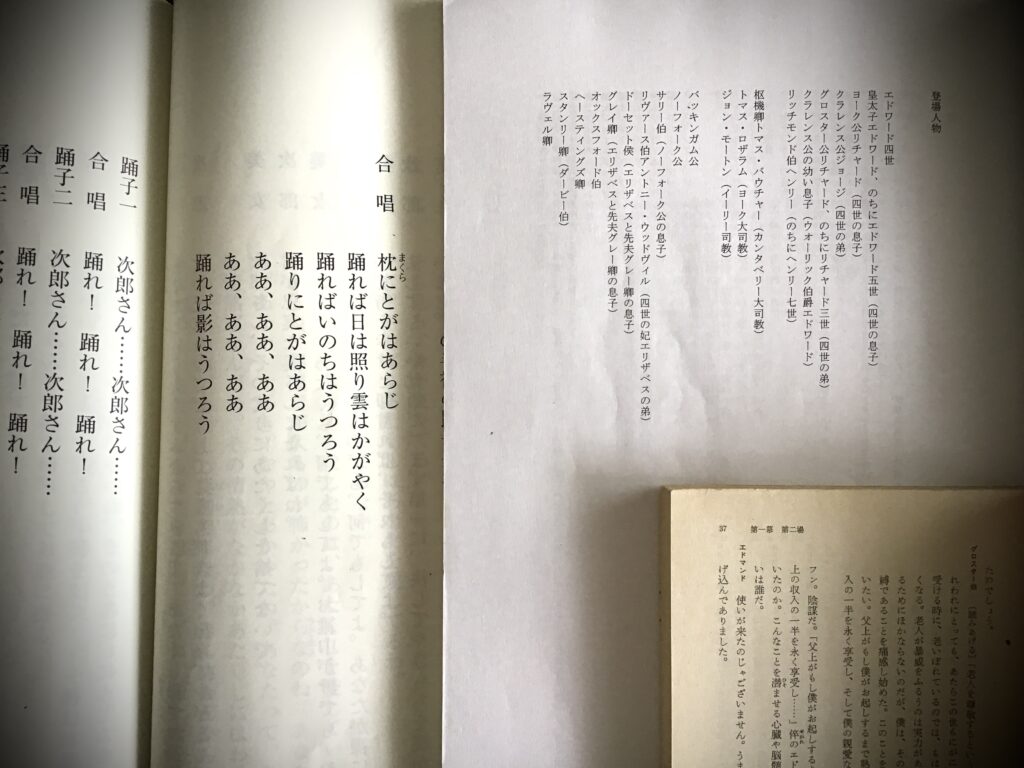 登場人物
エドワード四世
皇太子エドワード、のちにエドワード五世（四世の息子）
ヨーク公リチャード（四世の息子）
クラレンス公ジョージ（四世の弟）
グロスター公リチャード、のちにリチャード三世（四世の弟）
クラレンス公の幼い息子（ウォーリック伯爵エドワード）
リッチモンド伯ヘンリー（のちにヘンリー七世）
枢機卿トマス・バウチャー（カンタベリー大司教）
トマス・ロザラム（ヨーク大司教）
ジョン・モートン（イーリー司教）
バッキンガム公
ノーフォーク公
サリー伯（ノーフォーク公の息子）
リヴァース伯アントニー・ウッドヴィル（四世の妃エリザベスの弟）
ドーセット侯（エリザベスと先夫グレー卿の息子）
グレイ卿（エリザベスと先夫グレー卿の息子）
オックスフォード伯
ヘースティングズ卿
スタンリー卿（ダービー伯）
ラヴェル卿
合唱 枕にとがはあらじ
まくら
踊れば日は照り雲はかがやく
踊ればいのちはうつろう
踊りにとがはあらじ
ああ、ああ、ああ
ああ、ああ、ああ
踊れば影はうつろう
踊子一 次郎さん……次郎さん……
合唱 踊れ！ 踊れ！ 踊れ！
踊子二 次郎さん……次郎さん……
合唱 踊れ！ 踊れ！ 踊れ！
37 第一幕 第二場
たのでしょう。
グロスター伯 （読みあげる）
われわれにとっても、あたらこの世
受ける時に、老いぼれているのでは、
くなる。老人が暴威をふるうのは実力が
るためにほかならないのだが、僕は、その
縛であることを痛感し始めた。このことを
いたい。父上がもし僕がお起しするまで
入の一半を永く享受し、そして僕の親愛な
フン。陰謀だ。「父上がもし僕がお起しする
上の収入の一半を永く享受し……」倅のエド
せがれ
いたのか。こんなことを潜ませる心臓や脳髄
ひそ
いは誰だ。
エドマンド 使いが来たのじゃございません。うま
げ込んでありました。